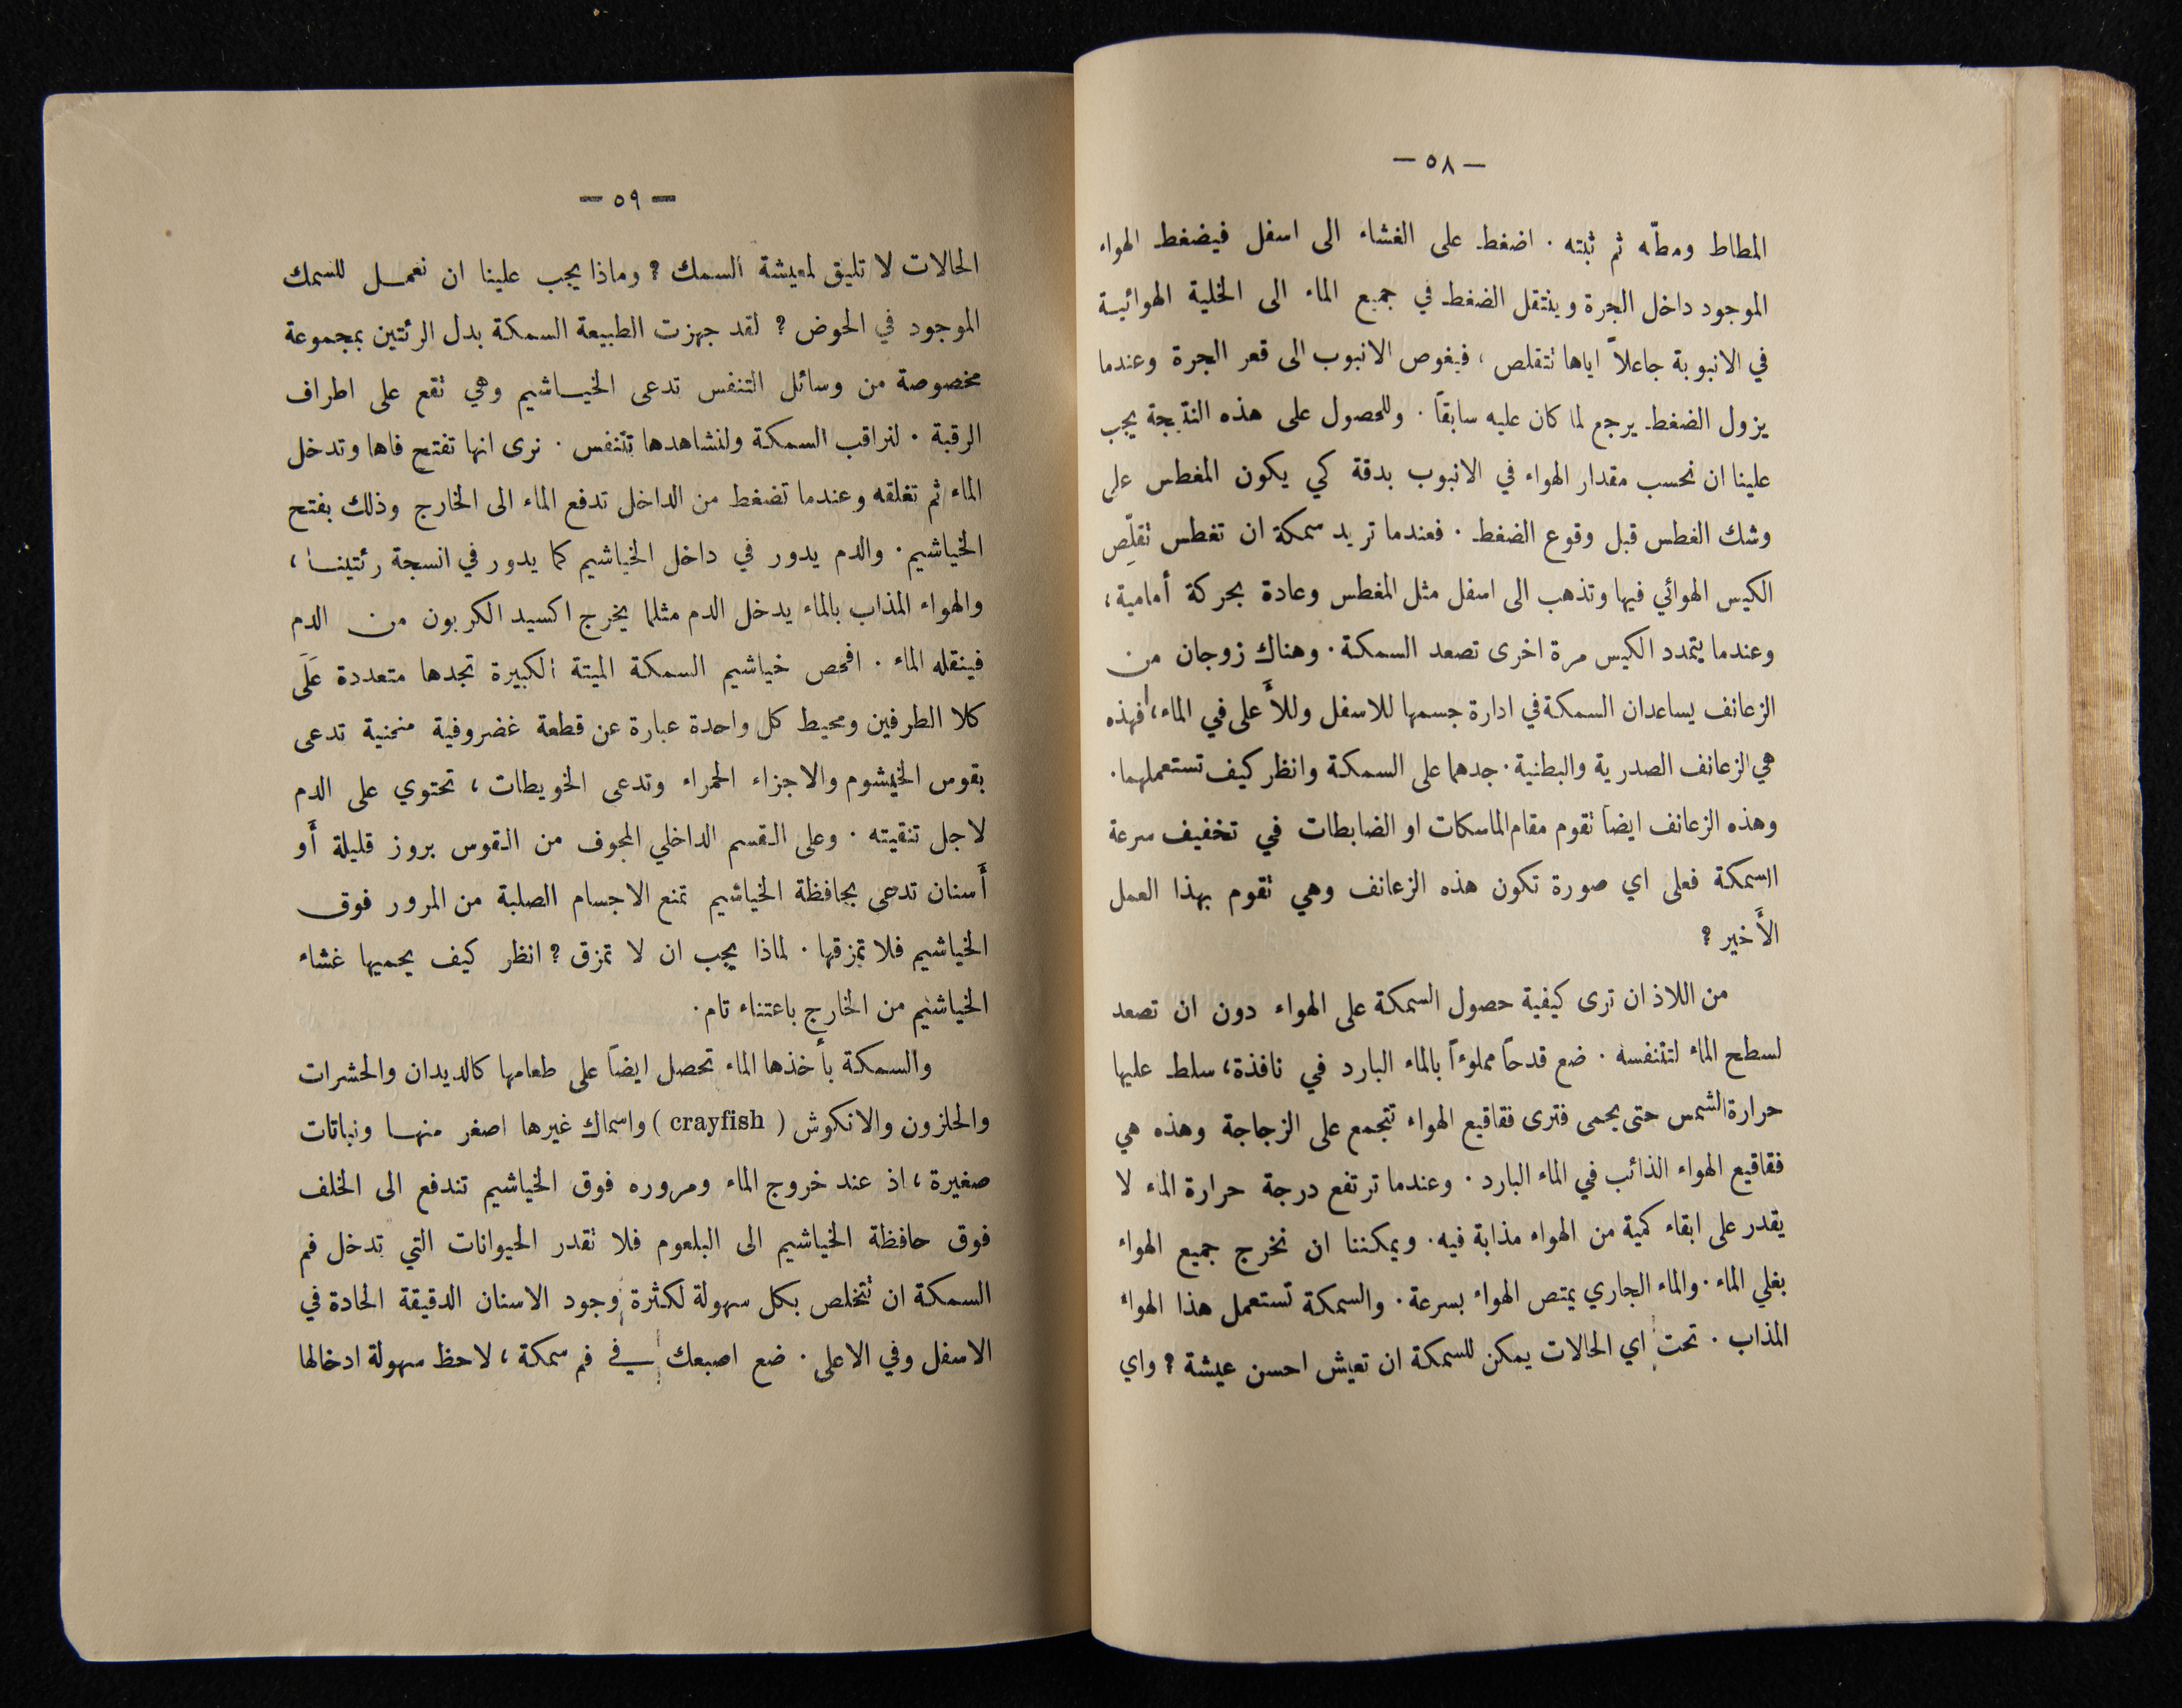 — ٥٨ —
المطاط ومطّه ثم ثبته . اضغط على الغشاء الى اسفل فيضغط الهواء
الموجود داخل الجرة وينتقل الضغط في جميع الماء الى الخلية الهوائية
في الانبوبة جاعلاً اياها تتقلص ، فيغوص الانبوب الى قعر الجرة وعندما
يزول الضغط يرجع لما كان عليه سابقاً . وللحصول على هذه النتيجة يجب
علينا ان نحسب مقدار الهواء في الانبوب بدقة كي يكون المغطس على
وشك الغطس قبل وقوع الضغط . فعندما تريد سمكة ان تغطس تقلّص
الكيس الهوائي فيها وتذهب الى اسفل مثل المغطس وعادة بحركة أمامية ،
وعندما يتمدد الكيس مرة اخرى تصعد السمكة . وهناك زوجان من
الزعانف يساعدان السمكة في ادارة جسمها للاسفل وللأَعلى في الماء ، فهذه
هي الزعانف الصدرية والبطنية . جدهما على السمكة وانظر كيف تستعملهما .
وهذه الزعانف ايضاً تقوم مقام الماسكات او الضابطات في تخفيف سرعة
السمكة فعلى اي صورة تكون هذه الزعانف وهي تقوم بهذا العمل
الأَخير ؟
من اللاذ ان ترى كيفية حصول السمكة على الهواء دون ان تصعد
لسطح الماء لتتنفسه . ضع قدحاً مملوءاً بالماء البارد في نافذة ، سلط عليها
حرارة الشمس حتى يحمى فترى فقاقيع الهواء تتجمع على الزجاجة وهذه هي
فقاقيع الهواء الذائب في الماء البارد . وعندما ترتفع درجة حرارة الماء لا
يقدر على ابقاء كمية من الهواء مذابة فيه . ويمكننا ان نخرج جميع الهواء
بغلي الماء . والماء الجاري يمتص الهواء بسرعة . والسمكة تستعمل هذا الهواء
المذاب . تحت اي الحالات يمكن للسمكة ان تعيش احسن عيشة ؟ واي
— ٥٩ —
الحالات لا تليق لمعيشة السمك ؟ وماذا يجب علينا ان نعمل للسمك
الموجود في الحوض ؟ لقد جهزت الطبيعة السمكة بدل الرئتين بمجموعة
مخصوصة من وسائل التنفس تدعى الخياشيم وهي تقع على اطراف
الرقبة . لنراقب السمكة ولنشاهدها تتنفس . نرى انها تفتح فاها وتدخل
الماء ثم تغلقه وعندما تضغط من الداخل تدفع الماء الى الخارج وذلك بفتح
الخياشيم . والدم يدور في داخل الخياشيم كما يدور في انسجة رئتينا ،
والهواء المذاب بالماء يدخل الدم مثلما يخرج اكسيد الكربون من الدم
فينقله الماء . افحص خياشيم السمكة الميتة الكبيرة تجدها متعددة عَلَى
كلا الطرفين ومحيط كل واحدة عبارة عن قطعة غضروفية منحنية تدعى
بقوس الخيشوم والاجزاء الحمراء وتدعى الخويطات ، تحتوي على الدم
لاجل تنقيته . وعلى القسم الداخلي المجوف من القوس بروز قليلة أَو
أَسنان تدعى بحافظة الخياشيم تمنع الاجسام الصلبة من المرور فوق
الخياشيم فلا تمزقها . لماذا يجب ان لا تمزق ؟ انظر كيف يحميها غشاء
الخياشيم من الخارج باعتناء تام .
والسمكة بأخذها الماء تحصل ايضاً على طعامها كالديدان والحشرات
والحلزون والانكوش ( crayfish ) واسماك غيرها اصغر منها ونباتات
صغيرة ، اذ عند خروج الماء ومروره فوق الخياشيم تندفع الى الخلف
فوق حافظة الخياشيم الى البلعوم فلا تقدر الحيوانات التي تدخل فم
السمكة ان تتخلص بكل سهولة لكثرة وجود الاسنان الدقيقة الحادة في
الاسفل وفي الاعلى . ضع اصبعك في فم سمكة ، لاحظ سهولة ادخالها